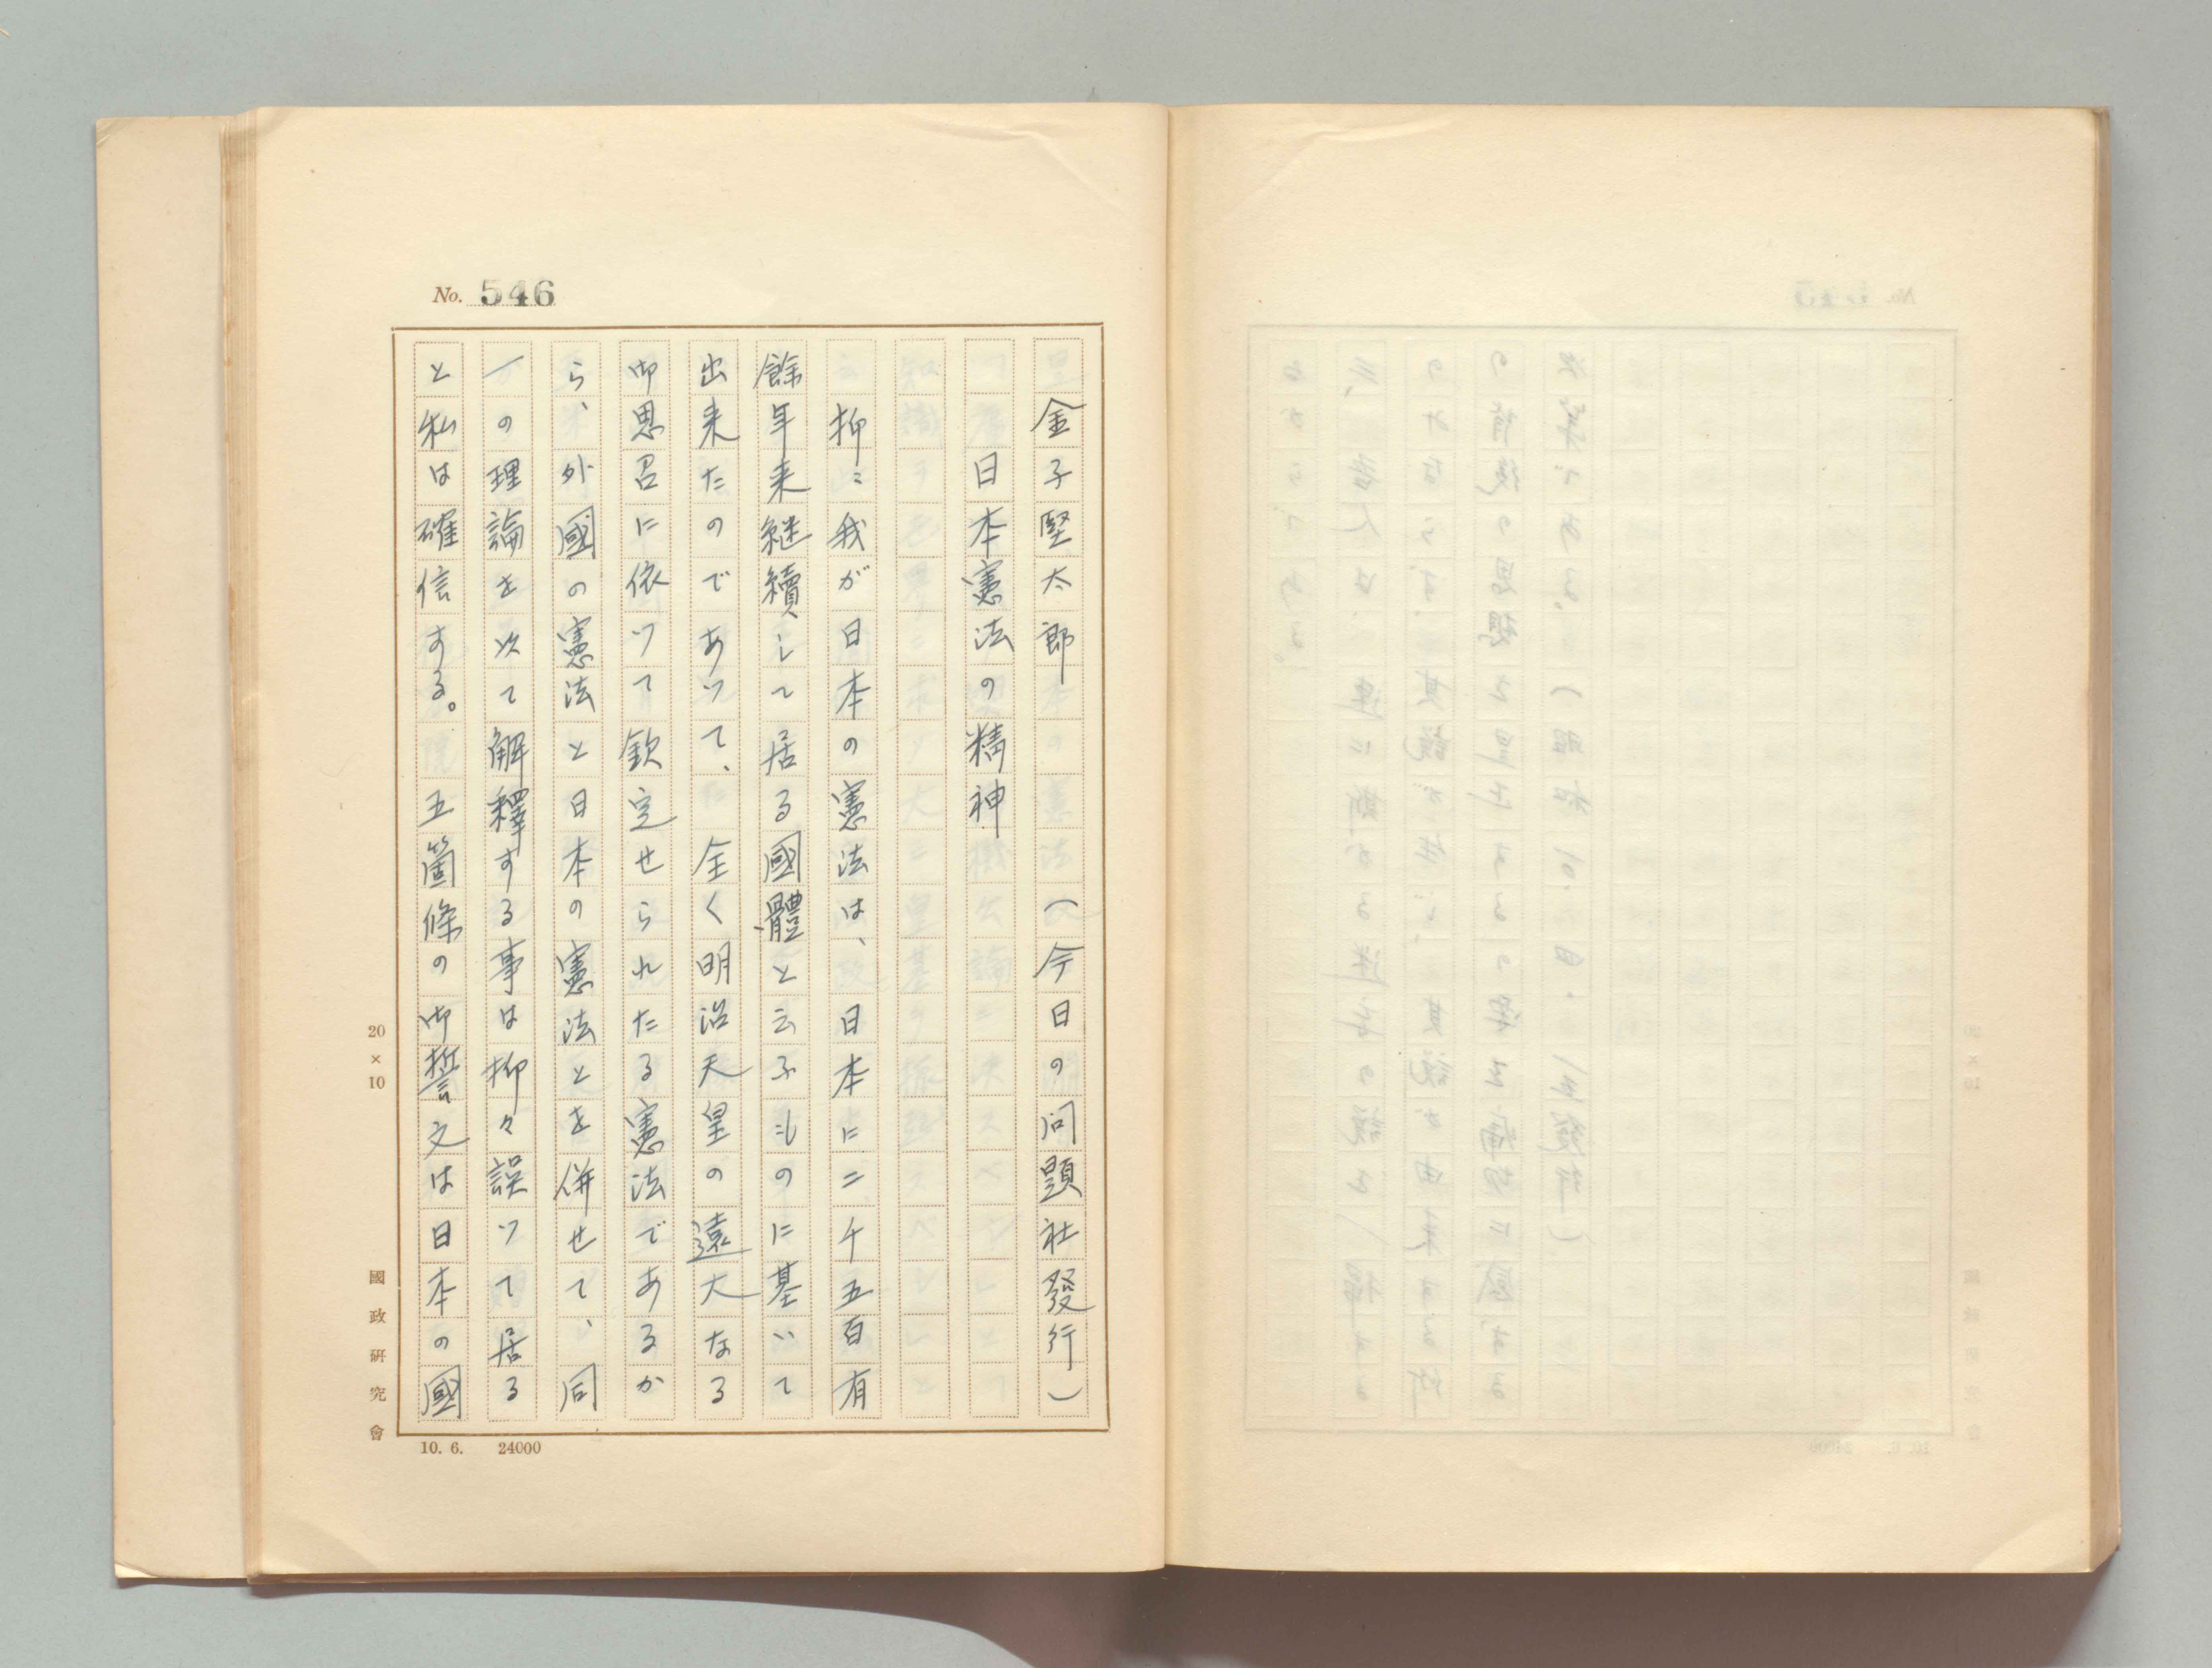 No. 546
金子堅太郎　　　　（今日の問題社發行）
日本憲法の精神
抑〻我が日本の憲法は、日本に二千五百有
餘年来継續して居る國體と云ふものに基いて
出来たのであつて、全く明治天皇の遠大なる
御思召に依つて欽定せられたる憲法であるか
ら、外國の憲法と日本の憲法とを併せて、同
一の理論を以て解釋する事は抑々誤つて居る
と私は確信する。五箇條の御誓文は日本の國
20×10
國政研究會
10. 6.　24000